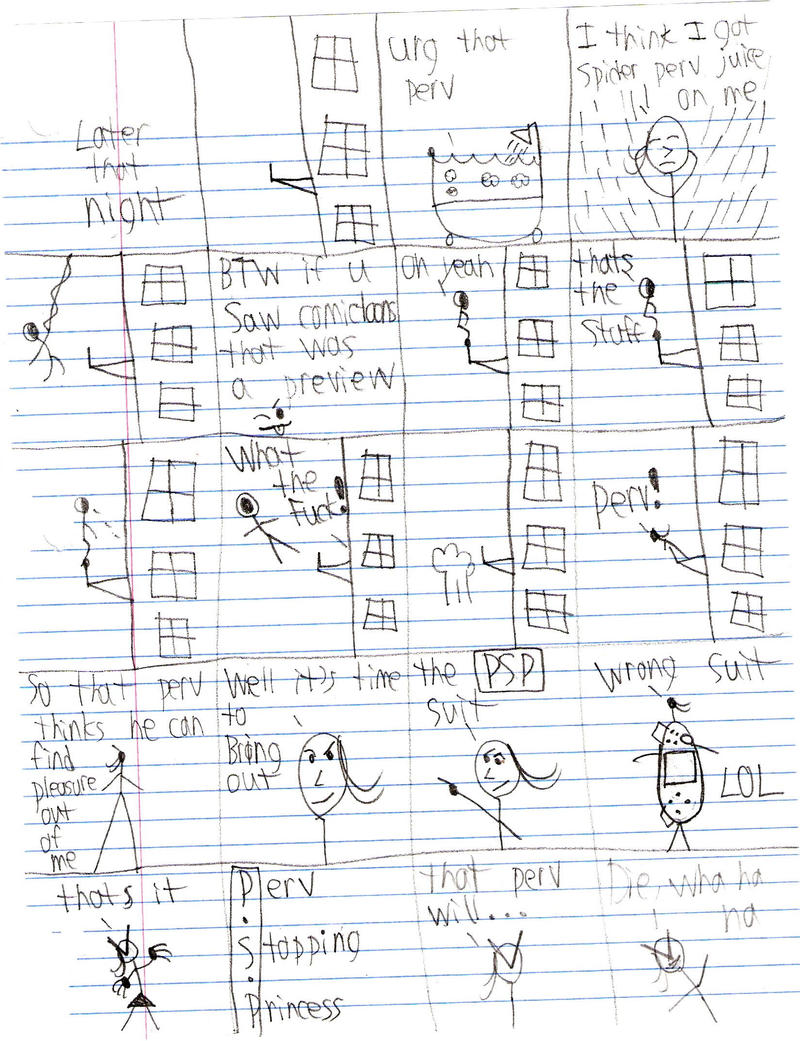 Later
that
night
urg that
perv
I think I got
spider perv juice
on me
BTW if u
Saw comictoons
that was
a preview
oh yeah
thats
the
stuff
What
the
Fuck!
perv!
So that perv
thinks he can
find
pleasure
out
of
me
Well it's time
to
Bring
out
the PSP
suit
wrong suit
LOL
thats it
Perv
Stopping
Princess
that perv
will...
Die, wha ha
ha